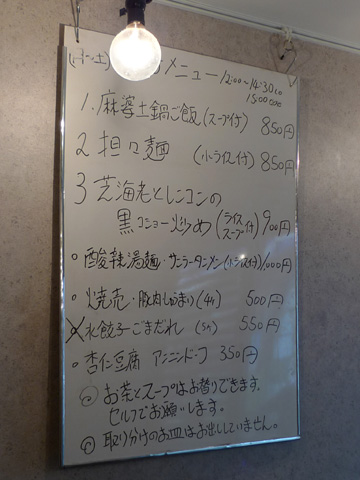 (月〜土) メニュー 12:00〜14:30
15:00
1. 麻婆土鍋ご飯 (スープ付) 850円
2 担々麺 (小ライス付) 850円
3 芝海老とレンコンの
黒コショー炒め (ライス スープ付) 900円
• 酸辣湯麺・サンラータンメン (小ライス付) 1,000円
• 焼売・豚肉しゅうまい (4ケ) 500円
× 水餃子ごまだれ (5ケ) 550円
• 杏仁豆腐 アンニンドーフ 350円
お茶とスープはお替りできます。
セルフでお願いします。
取り分けのお皿はお出ししていません。